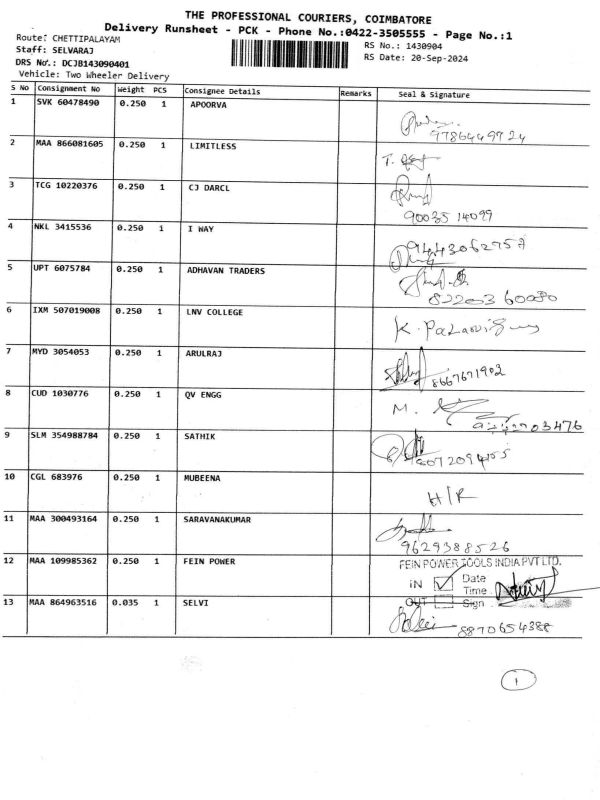 THE PROFESSIONAL COURIERS, COIMBATORE
Delivery Runsheet - PCK - Phone No.:0422-3505555 - Page No.:1
Route: CHETTIPALAYAM
RS No.: 1430904
Staff: SELVARAJ
RS Date: 20-Sep-2024
DRS No.: DCJB143090401
Vehicle: Two Wheeler Delivery
S No Consignment No Weight PCS Consignee Details Remarks Seal & Signature
1 SVK 60478490 0.250 1 APOORVA
9786449724
2 MAA 866081605 0.250 1 LIMITLESS
T.
3 TCG 10220376 0.250 1 CJ DARCL
9003514099
4 NKL 3415536 0.250 1 I WAY
9443062757
5 UPT 6075784 0.250 1 ADHAVAN TRADERS
8220360080
6 IXM 507019008 0.250 1 LNV COLLEGE
K.
7 MYD 3054053 0.250 1 ARULRAJ
8667671902
8 CUD 1030776 0.250 1 QV ENGG
M.
9 SLM 354988784 0.250 1 SATHIK
10 CGL 683976 0.250 1 MUBEENA
H/R
11 MAA 300493164 0.250 1 SARAVANAKUMAR
9629388526
12 MAA 109985362 0.250 1 FEIN POWER
FEIN POWER TOOLS INDIA PVT LTD.
IN Date
Time
OUT Sign
13 MAA 864963516 0.035 1 SELVI
8870654388
1